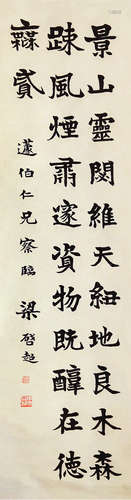 景山靈閟維天紐地良木森
踈風煙肅邃資物既醇在德
貳
蘧伯仁兄察臨 梁啓超